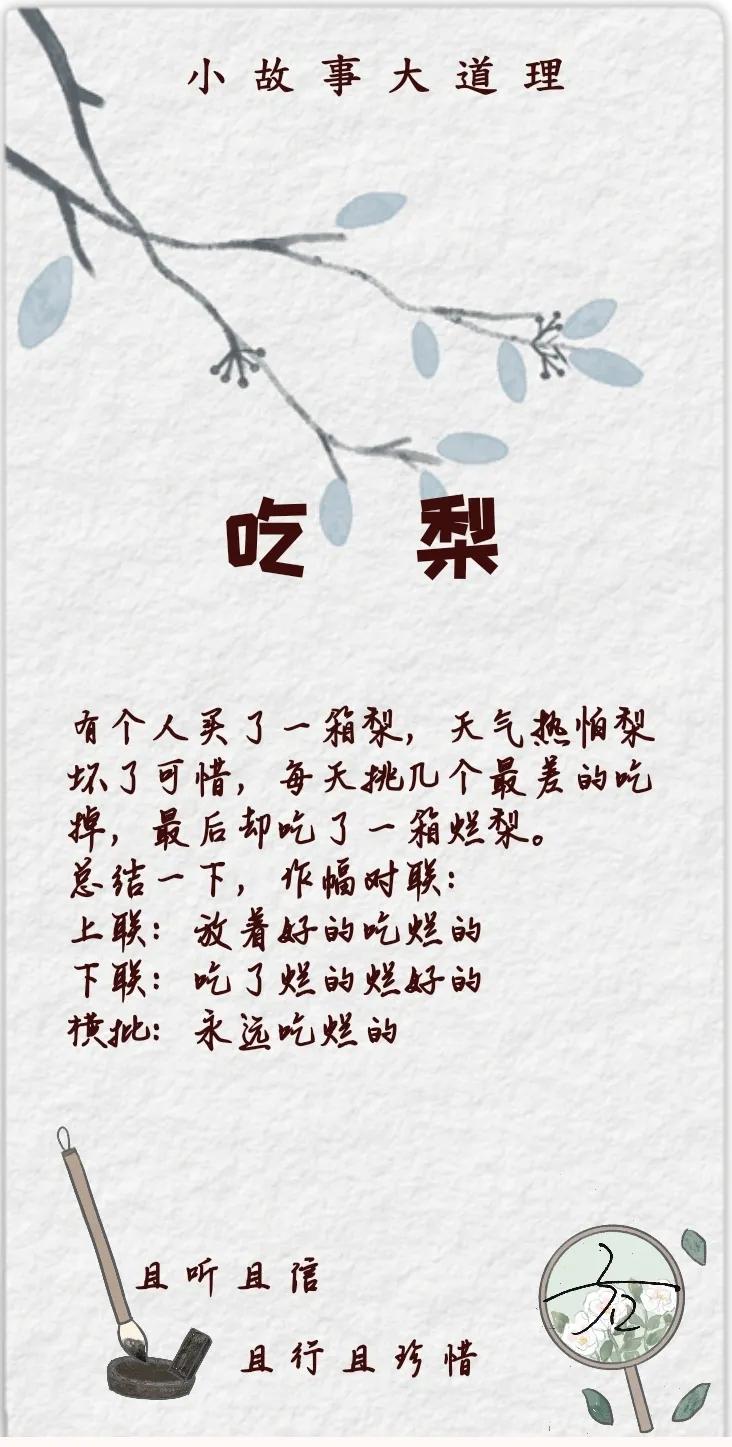 小故事大道理
吃 梨
有个人买了一箱梨，天气热怕梨
坏了可惜，每天挑几个最差的吃
掉，最后却吃了一箱烂梨。
总结一下，作幅对联：
上联：放着好的吃烂的
下联：吃了烂的烂好的
横批：永远吃烂的
且听且信
且行且珍惜